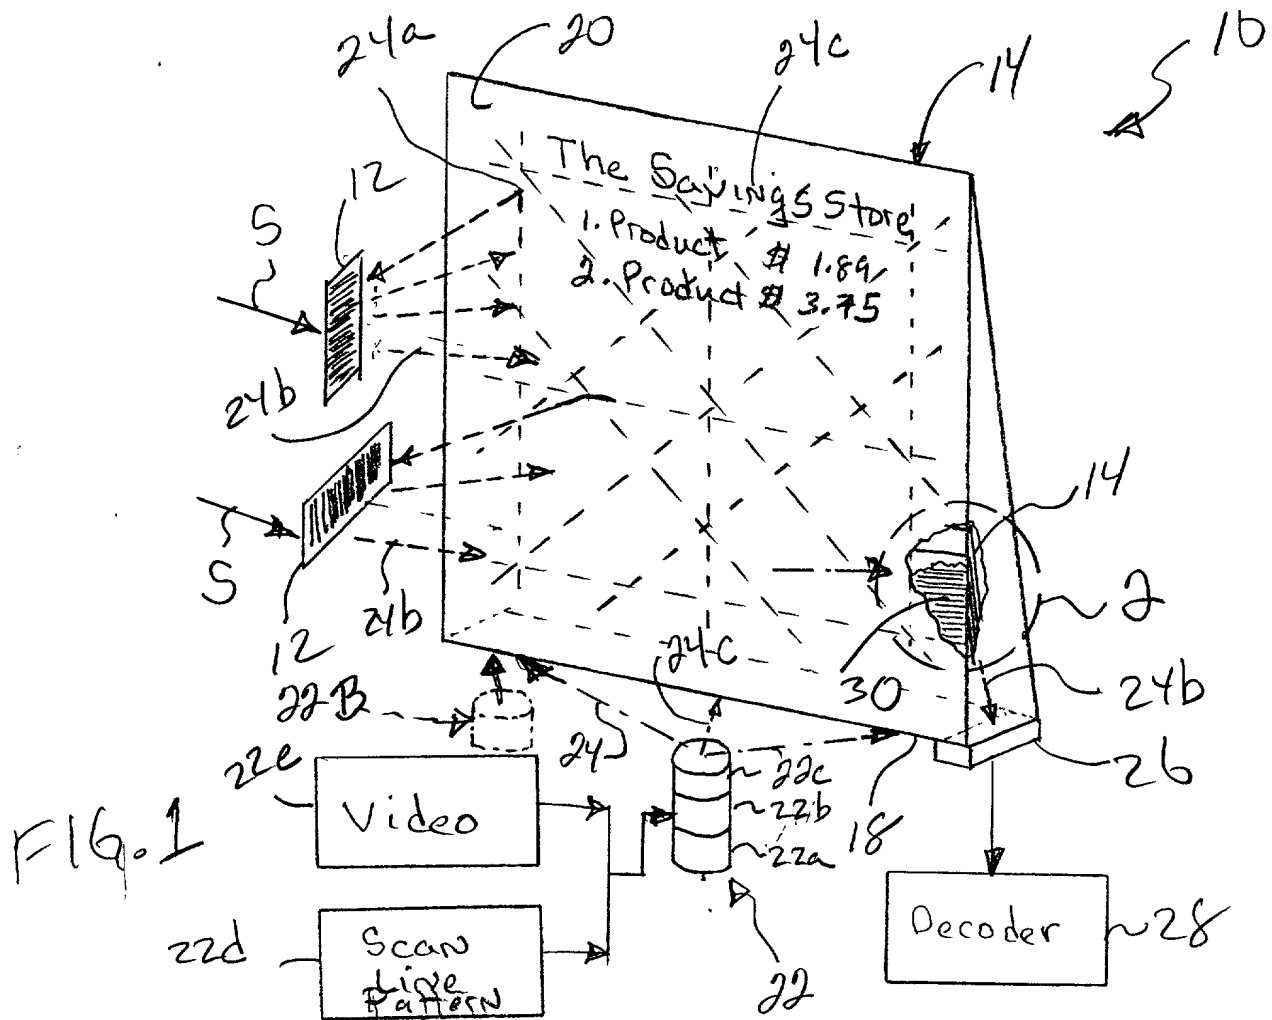 24a
20
24c
14
10
12
S
The Savings Store
1. Product $ 1.89
2. Product $ 3.75
24b
14
S
2
12
24b
24c
30
24b
22B
24
26
22e
Video
22c
22b
22a
18
FIG. 1
22d
Scan
Line
Pattern
22
Decoder
28